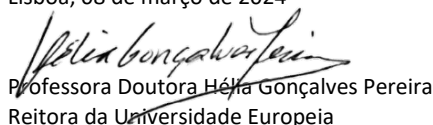 Lisboa, 08 de março de 2024
Hélia Gonçalves Pereira
Professora Doutora Hélia Gonçalves Pereira
Reitora da Universidade Europeia